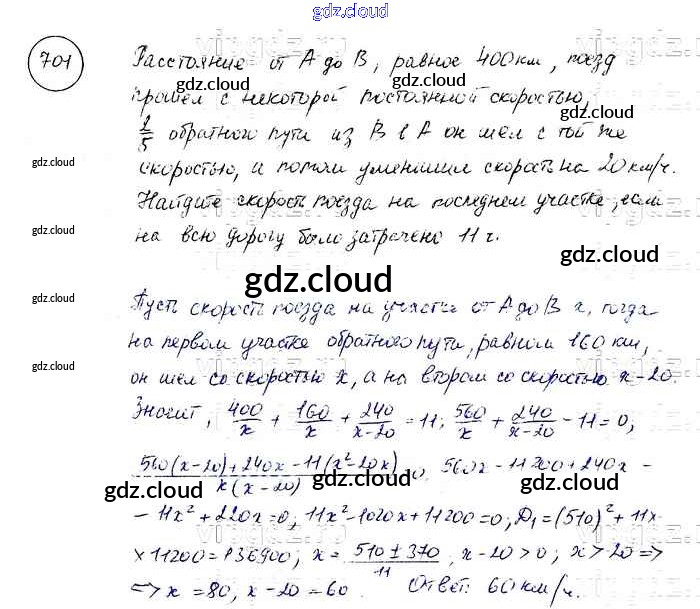 gdz.cloud
701
Расстояние от А до В, равное 400 км, поезд
gdz.cloud
gdz.cloud
прошел с некоторой постоянной скоростью,
gdz.cloud
2/5 обратного пути из В в А он шел с той же
gdz.cloud
скоростью, и потом уменьшил скорость на 20 км/ч.
gdz.cloud
Найдите скорость поезда на последнем участке, если
gdz.cloud
на всю дорогу было затрачено 11 ч.
gdz.cloud
gdz.cloud
gdz.cloud
Пусть скорость поезда на участке от А до В x, тогда
на первом участке обратного пути, равном 160 км,
gdz.cloud
он шел со скоростью x, а на втором со скоростью x-20.
Значит, 400/x + 160/x + 240/(x-20) = 11; 560/x + 240/(x-20) - 11 = 0,
(560(x-20)+240x-11(x²-20x))/(x(x-20)) 0, 560x-11200+240x-
gdz.cloud
gdz.cloud
gdz.cloud
-11x²+220x=0, 11x²-1020x+11200=0; D₁=(510)²+11×
×11200=136900; x = (510±370)/11, x-20>0; x>20 =>
=> x = 80, x-20 = 60. Ответ: 60 км/ч.
gdz.cloud
gdz.cloud